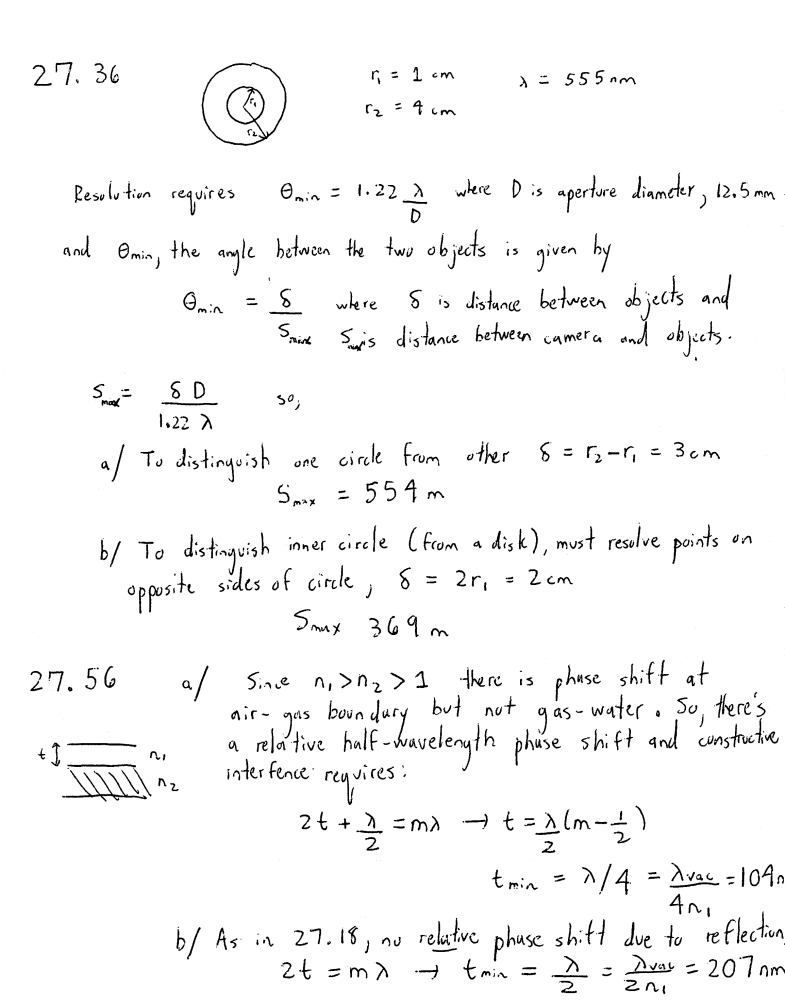 27.36
r₁ = 1 cm λ = 555 nm
r₂ = 4 cm
r₁
r₂
Resolution requires θmin = 1.22 λ/D where D is aperture diameter, 12.5 mm
and θmin, the angle between the two objects is given by
θmin = δ/Smax where δ is distance between objects and
Smax is distance between camera and objects.
Smax = δD/1.22 λ so,
a/ To distinguish one circle from other δ = r₂-r₁ = 3cm
Smax = 554 m
b/ To distinguish inner circle (from a disk), must resolve points on
opposite sides of circle, δ = 2r₁ = 2cm
Smax 369 m
27.56 a/ Since n₁>n₂>1 there is phase shift at
air-gas boundary but not gas-water. So, there's
a relative half-wavelength phase shift and constructive
interfence requires:
t n₁
n₂
2t + λ/2 = mλ → t = λ/2 (m-1/2)
tmin = λ/4 = λvac/4n₁ = 104n
b/ As in 27.18, no relative phase shift due to reflection
2t = mλ → tmin = λ/2 = λvac/2n₁ = 207 nm